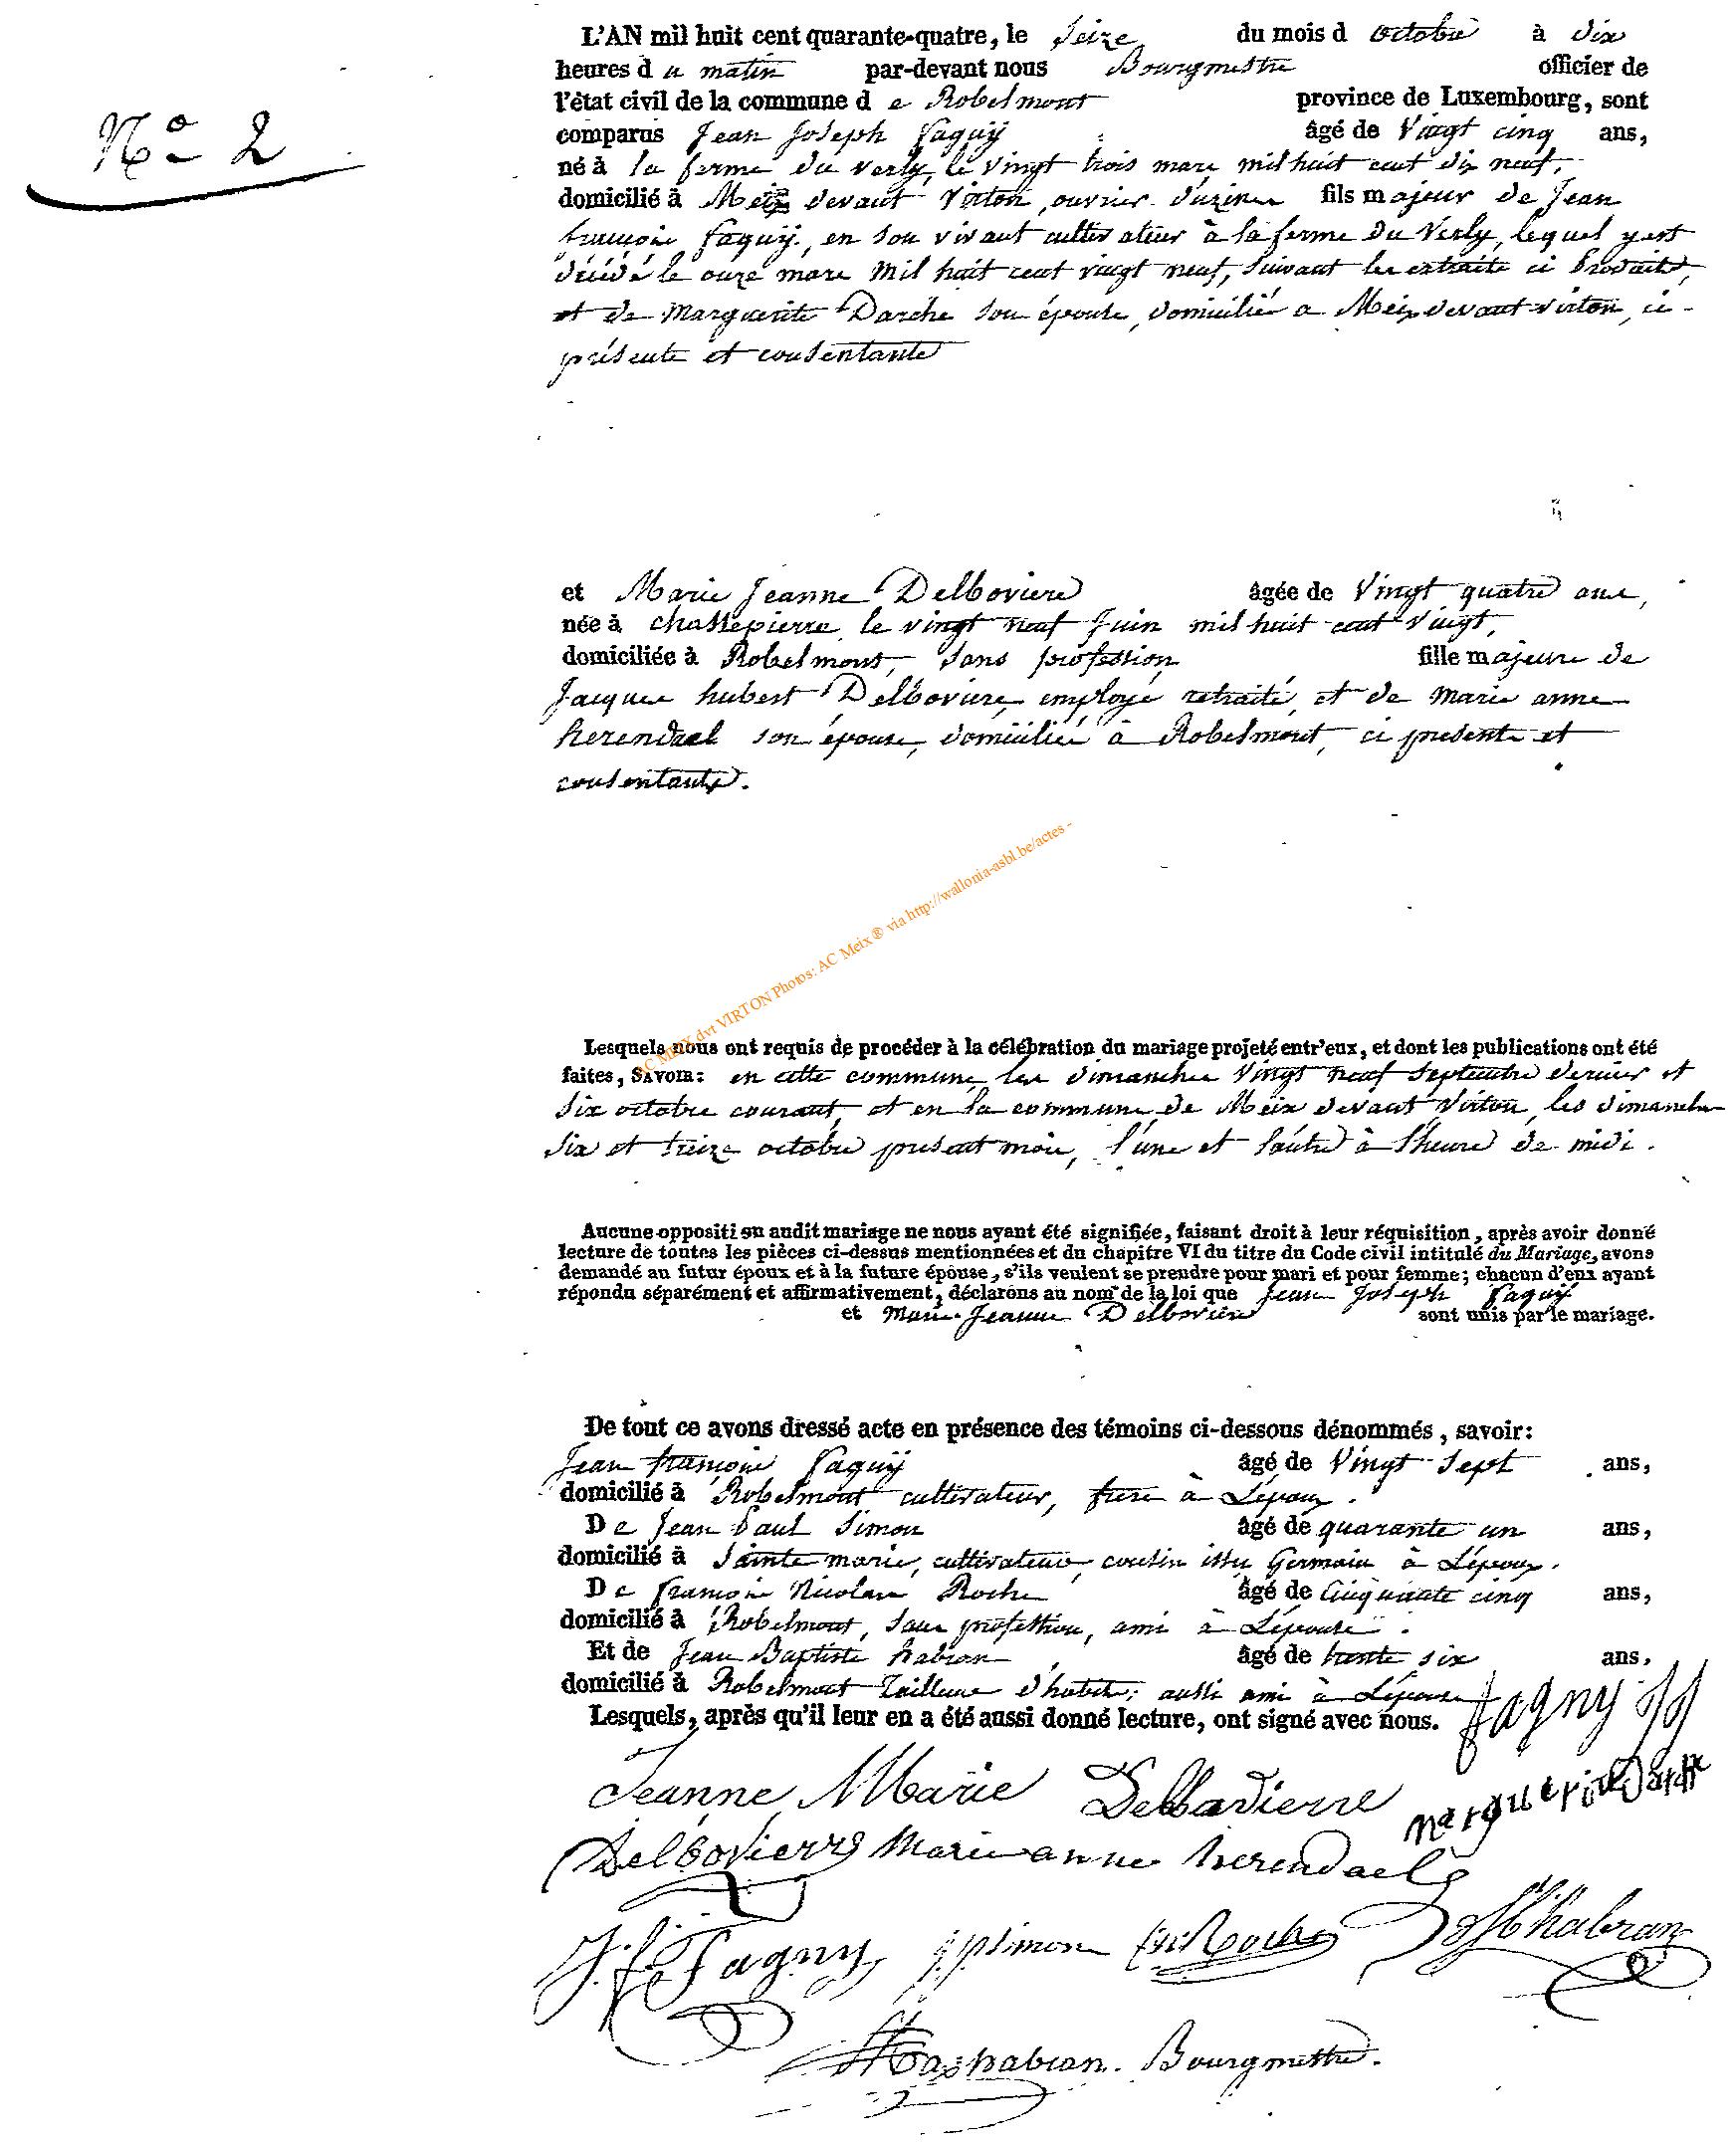 N.o 2
L'AN mil huit cent quarante-quatre, le Seize du mois d octobre à dix
heures d u matin par-devant nous Bourgmestre officier de
l'état civil de la commune d e Robelmont province de Luxembourg, sont
comparus Jean Joseph Fagnÿ âgé de Vingt cinq ans,
né à la ferme du Verly, le vingt trois mars mil huit cent dix neuf,
domicilié à Meix devant Virton, ouvrier d'uzines fils majeur de Jean
françois fagnÿ, en son vivant cultivateur à la ferme du Verly, lequel y est
décédé le onze mars mil huit cent vingt neuf, suivant les extraits ci produits,
et de Marguerite Darche son épouse, domiciliée a Meix devant virton, ci-
présente et consentante
et Marie Jeanne Delboviere âgée de Vingt quatre ans,
née à chassepierre, le vingt neuf Juin mil huit cent vingt,
domiciliée à Robelmont, sans profession fille majeure de
Jacques hubert Delboviere, employé retraité, et de marie anne
herendael son épouse, domiciliés à Robelmont, ci presents et
consentants.
AC MEIX dvt VIRTON Photos: AC Meix ® via http://wallonia-asbl.be/actes -
Lesquels nous ont requis de procéder à la célébration du mariage projeté entr'eux, et dont les publications ont été
faites, SAVOIR: en cette commune, les dimanches Vingt neuf Septembre dernier et
Six octobre courant, et en la commune de Meix devant Virton, les dimanches
Six et treize octobre present mois, l'une et l'autre à l'heure de midi.
Aucune opposition audit mariage ne nous ayant été signifiée, faisant droit à leur réquisition, après avoir donné
lecture de toutes les pièces ci-dessus mentionnées et du chapitre VI du titre du Code civil intitulé du Mariage, avons
demandé au futur époux et à la future épouse, s'ils veulent se prendre pour mari et pour femme; chacun d'eux ayant
répondu séparément et affirmativement, déclarons au nom de la loi que Jean Joseph Fagnÿ
et Marie Jeanne Delboviere sont unis par le mariage.
De tout ce avons dressé acte en présence des témoins ci-dessous dénommés, savoir:
Jean françois Fagnÿ âgé de Vingt Sept ans,
domicilié à Robelmont cultivateur, frere à L'époux.
D e Jean Paul Simon âgé de quarante un ans,
domicilié à Sainte marie, cultivateur, cousin issu Germain à L'époux.
D e françois Nicolas Roche âgé de Cinquante cinq ans,
domicilié à Robelmont, sans profession, ami à L'épouse.
Et de Jean Baptiste habran âgé de trente six ans,
domicilié à Robelmont Tailleur d'habits, aussi ami à L'épouse
Lesquels, après qu'il leur en a été aussi donné lecture, ont signé avec nous. fagny JJ
Jeanne Marie Delbavierre Marguerite Darche
Delbovierre Marie anne herendael
J. f. Fagny j p simon f n Roche habran
habran. Bourgmestre.